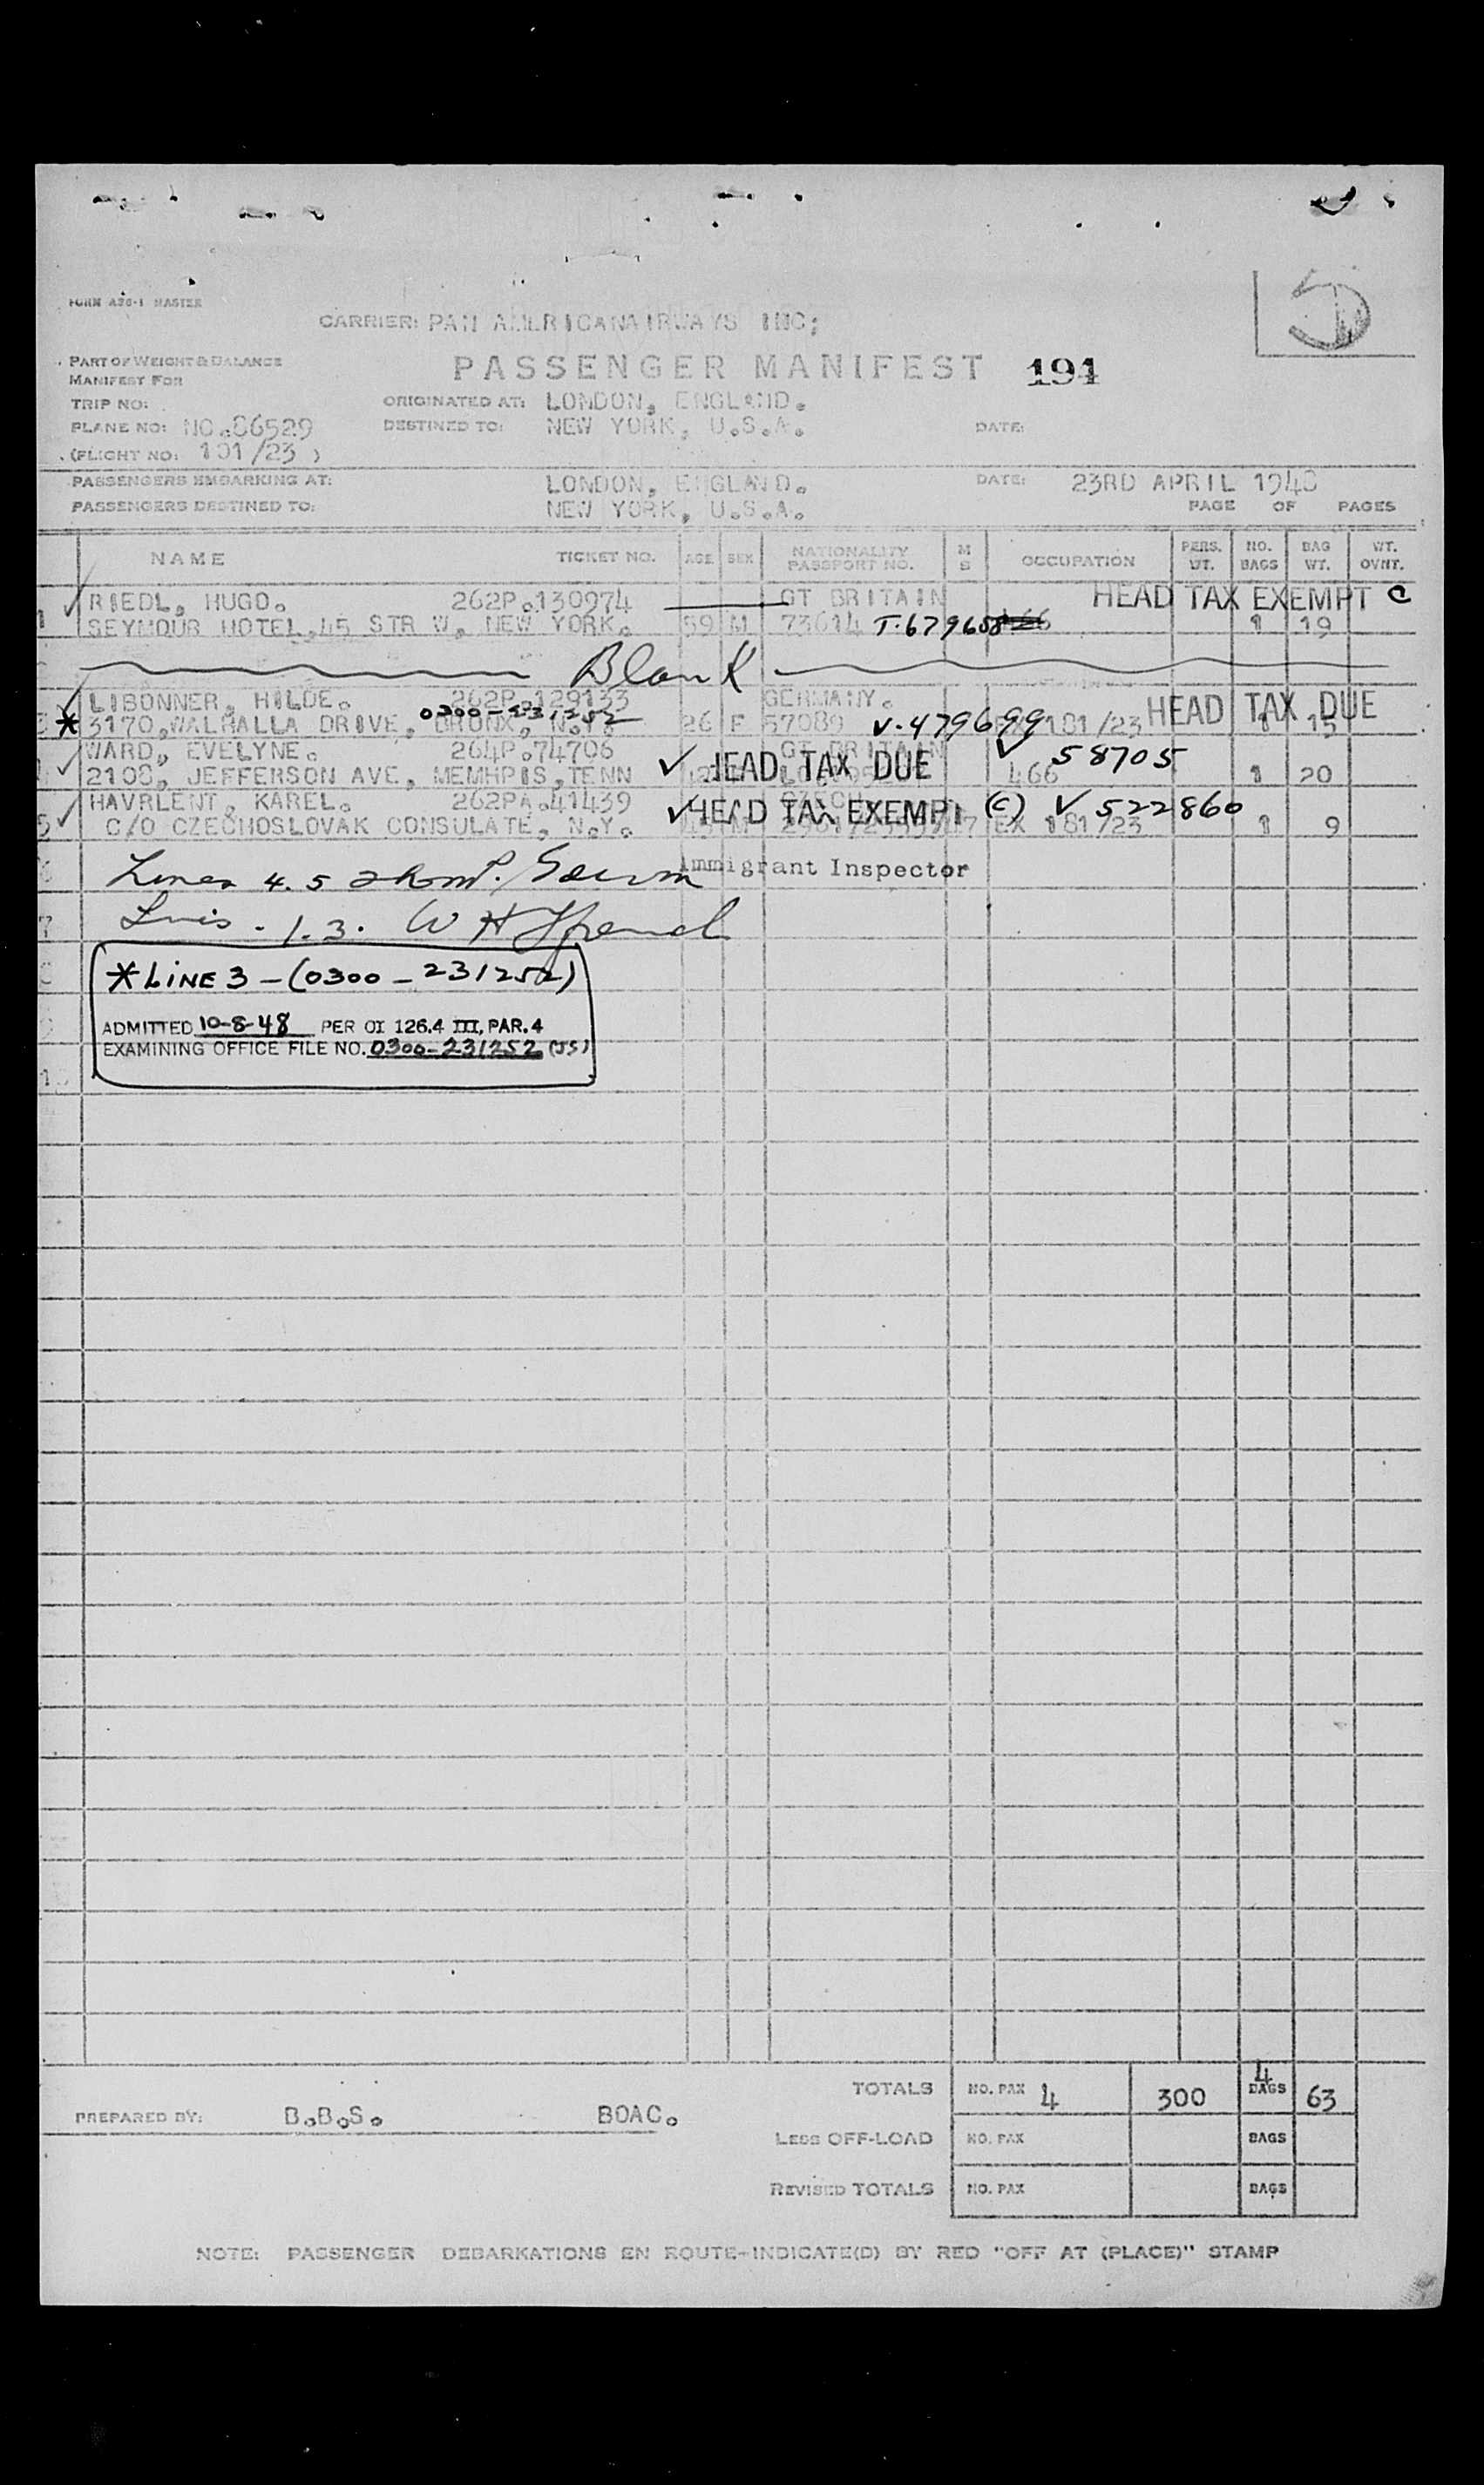 FORM A20-1 MASTER
CARRIER: PAN AMERICANAIRWAYS INC;
PART OF WEIGHT & BALANCE
MANIFEST FOR
PASSENGER MANIFEST 191
TRIP NO:
ORIGINATED AT: LONDON, ENGLAND.
PLANE NO: NO.86529 DESTINED TO: NEW YORK, U.S.A. DATE:
(FLIGHT NO: 101/23 )
PASSENGERS EMBARKING AT: LONDON, ENGLAND. DATE: 23RD APRIL 1948
PASSENGERS DESTINED TO: NEW YORK, U.S.A. PAGE OF PAGES
NAME TICKET NO. AGE SEX NATIONALITY PASSPORT NO. M S OCCUPATION PERS. WT. NO. BAGS BAG WT. WT. OVNT.
RIEDL, HUGO. 262P.130974 GT BRITAIN HEAD TAX EXEMPT C
1 SEYMOUR HOTEL,45 STR W, NEW YORK. 59 M 73614 T-679658 1 19
Blank
LIBONNER, HILDE. 262P.129133 GERMANY. HEAD TAX DUE
3 * 3170,WALHALLA DRIVE, BRONX, N.Y. 0300-231252 26 F 57089 V-479699 181/23 1 15
WARD, EVELYNE. 264P.74706 GT BRITAIN V 58705
2108, JEFFERSON AVE, MEMHPIS,TENN HEAD TAX DUE 466 1 20
HAVRLENT, KAREL. 262PA.41439 CZECH HEAD TAX EXEMPT (C) V 522860
5 C/O CZECHOSLOVAK CONSULATE, N.Y. 45 M EX 181/23 1 9
Lines 4. 5 Immigrant Inspector
7 1. 3. W H
*LINE 3 - (0300 - 231252)
ADMITTED 10-8-48 PER OI 126.4 III, PAR. 4
EXAMINING OFFICE FILE NO. 0300-231252 (JS)
TOTALS NO. PAX 4 300 4 BAGS 63
PREPARED BY: B.B.S. BOAC.
LESS OFF-LOAD NO. PAX BAGS
REVISED TOTALS NO. PAX BAGS
NOTE: PASSENGER DEBARKATIONS EN ROUTE-INDICATE(D) BY RED "OFF AT (PLACE)" STAMP